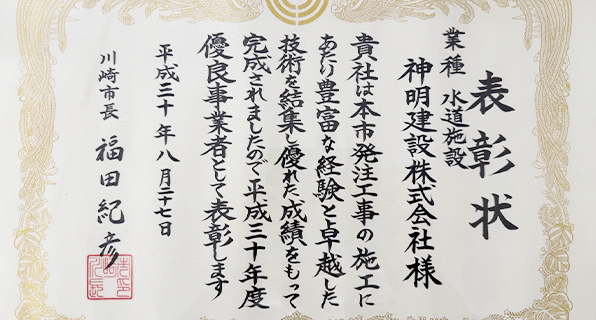 表彰状
業種 水道施設
神明建設株式会社様
貴社は本市発注工事の施工に
あたり豊富な経験と卓越した
技術を結集し優れた成績をもって
完成されましたので平成三十年度
優良事業者として表彰します
平成三十年八月二十七日
川崎市長 福田紀彦